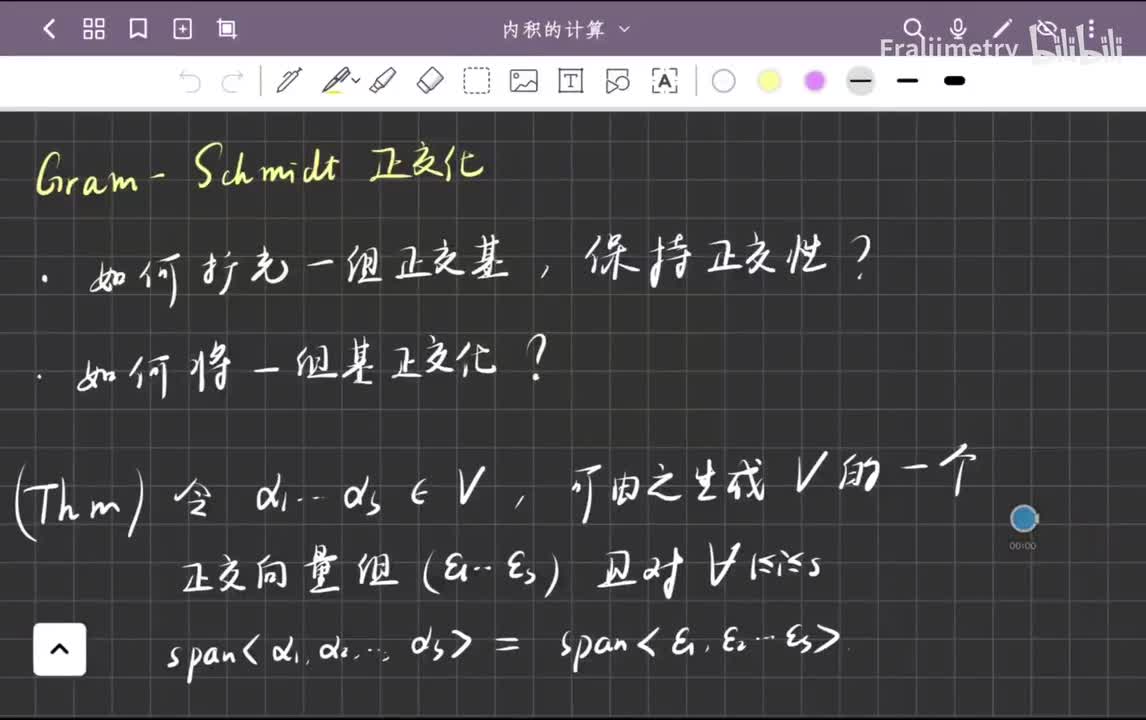 内积的计算
Fraljimetry bilibili
Gram-Schmidt 正交化
· 如何扩充一组正交基，保持正交性？
· 如何将一组基正交化？
(Thm) 令 α₁… αs ∈ V，可由之生成 V 的一个
正交向量组 (ε₁… εs) 且对 ∀ 1≤i≤s
span< α₁, α₂ …, αs > = span< ε₁, ε₂ … εs >.
00:00